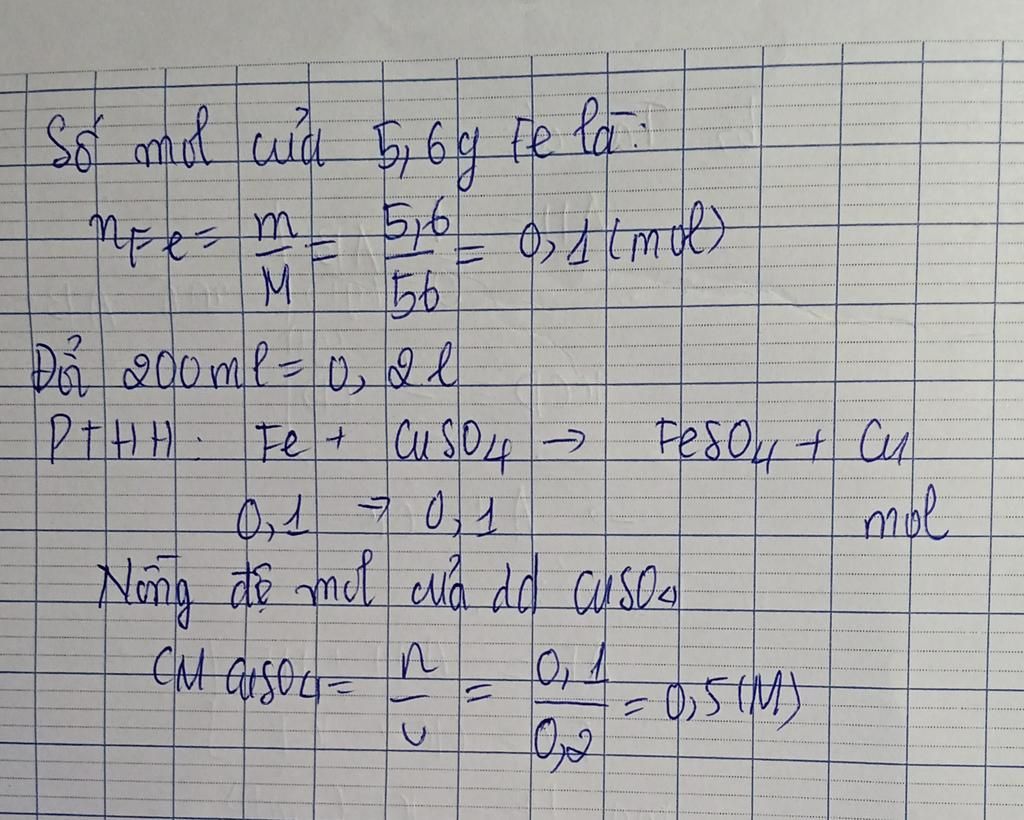 Số mol của 5,6g Fe là:
nFe = m/M = 5,6/56 = 0,1 (mol)
Đổi 200ml = 0,2l
PTHH: Fe + CuSO4 → FeSO4 + Cu
0,1 → 0,1 mol
Nồng độ mol của dd CuSO4
CM CuSO4 = n/v = 0,1/0,2 = 0,5 (M)